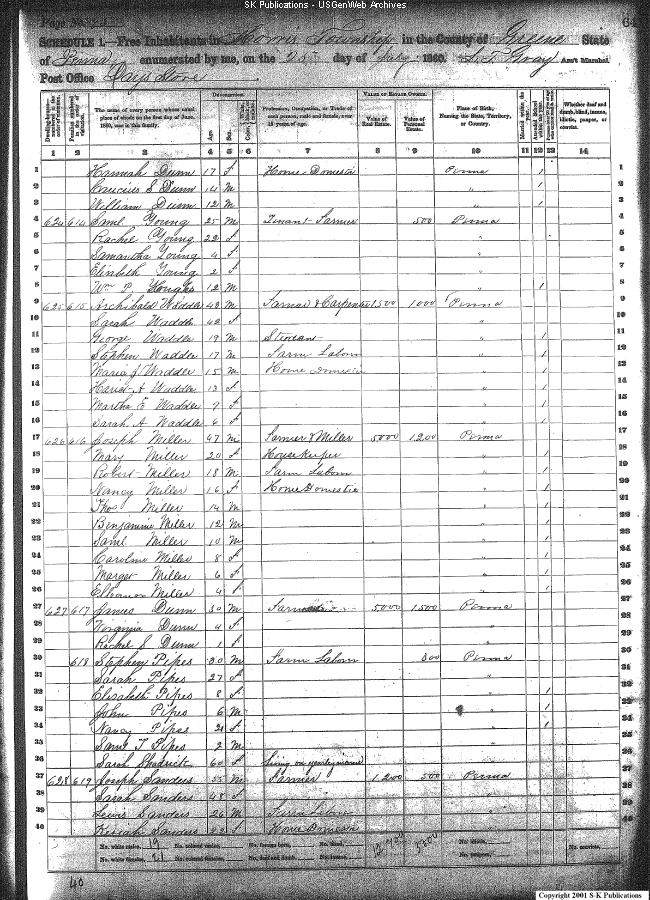 SK Publications - USGenWeb Archives
Page No.
SCHEDULE 1.—Free Inhabitants in Morris Township in the County of Greene State
of Penna enumerated by me, on the 25 day of July 1860. Gray Ass't Marshal
Post Office Days Store
Dwelling-houses numbered in the order of visitation. Families numbered in the order of visitation. The name of every person whose usual place of abode on the first day of June, 1860, was in this family. Description. Age Sex Profession, Occupation, or Trade of each person, male and female, over 15 years of age. Value of Estate Owned. Value of Real Estate. Value of Personal Estate. Place of Birth, Naming the State, Territory, or Country. Married within the year. Attended School within the year. Whether deaf and dumb, blind, insane, idiotic, pauper, or convict.
1 2 3 4 5 6 7 8 9 10 11 12 13 14
1 Hannah Dunn 17 f Home Domestic Penna 1 1
2 S Dunn 14 m " 1 2
3 William Dunn 12 m " 1 3
4 624 614 Saml Young 25 m Tenant Farmer 500 Penna 4
5 Rachel Young 22 f " 5
6 Samantha Young 4 f " 6
7 Elizabeth Young 2 f " 7
8 Wm P. 12 m " 1 8
9 625 615 Archibald Waddle 48 m Farmer & Carpenter 1,500 1000 Penna 9
10 Sarah Waddle 42 f " 10
11 George Waddle 19 m " 1 11
12 Stephen Waddle 17 m Farm Labor " 1 12
13 Maria J Waddle 15 m Home Domestic " 1 13
14 Harist A Waddle 13 f " 1 14
15 Martha E Waddle 9 f " 1 15
16 Sarah A Waddle 6 f " 1 16
17 626 616 Joseph Miller 47 m Farmer & Miller 5000 1200 Penna 17
18 Mary Miller 20 f Housekeeper " 18
19 Robert Miller 18 m Farm Labor " 1 19
20 Nancy Miller 16 f Home Domestic " 1
21 Thos Miller 14 m " 1 21
22 Benjamine Miller 12 m " 1 22
23 Saml Miller 10 m " 1 23
24 Caroline Miller 8 f " 1
25 Marget Miller 6 f " 1
26 Eleanor Miller 4 f "
27 627 617 James Dunn 30 m Farmer 5000 1500 Penna
28 Virginia Dunn 4 f "
29 Rachel S Dunn 1 f "
30 618 Stephen Pipes 30 m Farm Labor 300 Penna
31 Sarah Pipes 27 f "
32 Elizabeth Pipes 8 f " 1
33 John Pipes 6 m " 1
34 Nancy Pipes f "
35 Saml T Pipes 2 m "
36 Sarah Shadrick 60 f living on
37 628 619 Joseph Sanders 55 m Farmer 1,200 500 Penna
38 Sarah Sanders 48 f "
39 Lewis Sanders 26 m Farm Labor "
40 Keziah Sanders 22 f Home Domestic "
No. white males, 19 No. colored males, No. foreign born, No. blind,
No. white females, 21 No. colored females, No. deaf and dumb, No. insane, No. idiotic, No. paupers, No. convicts,
40
Copyright 2001 S-K Publications